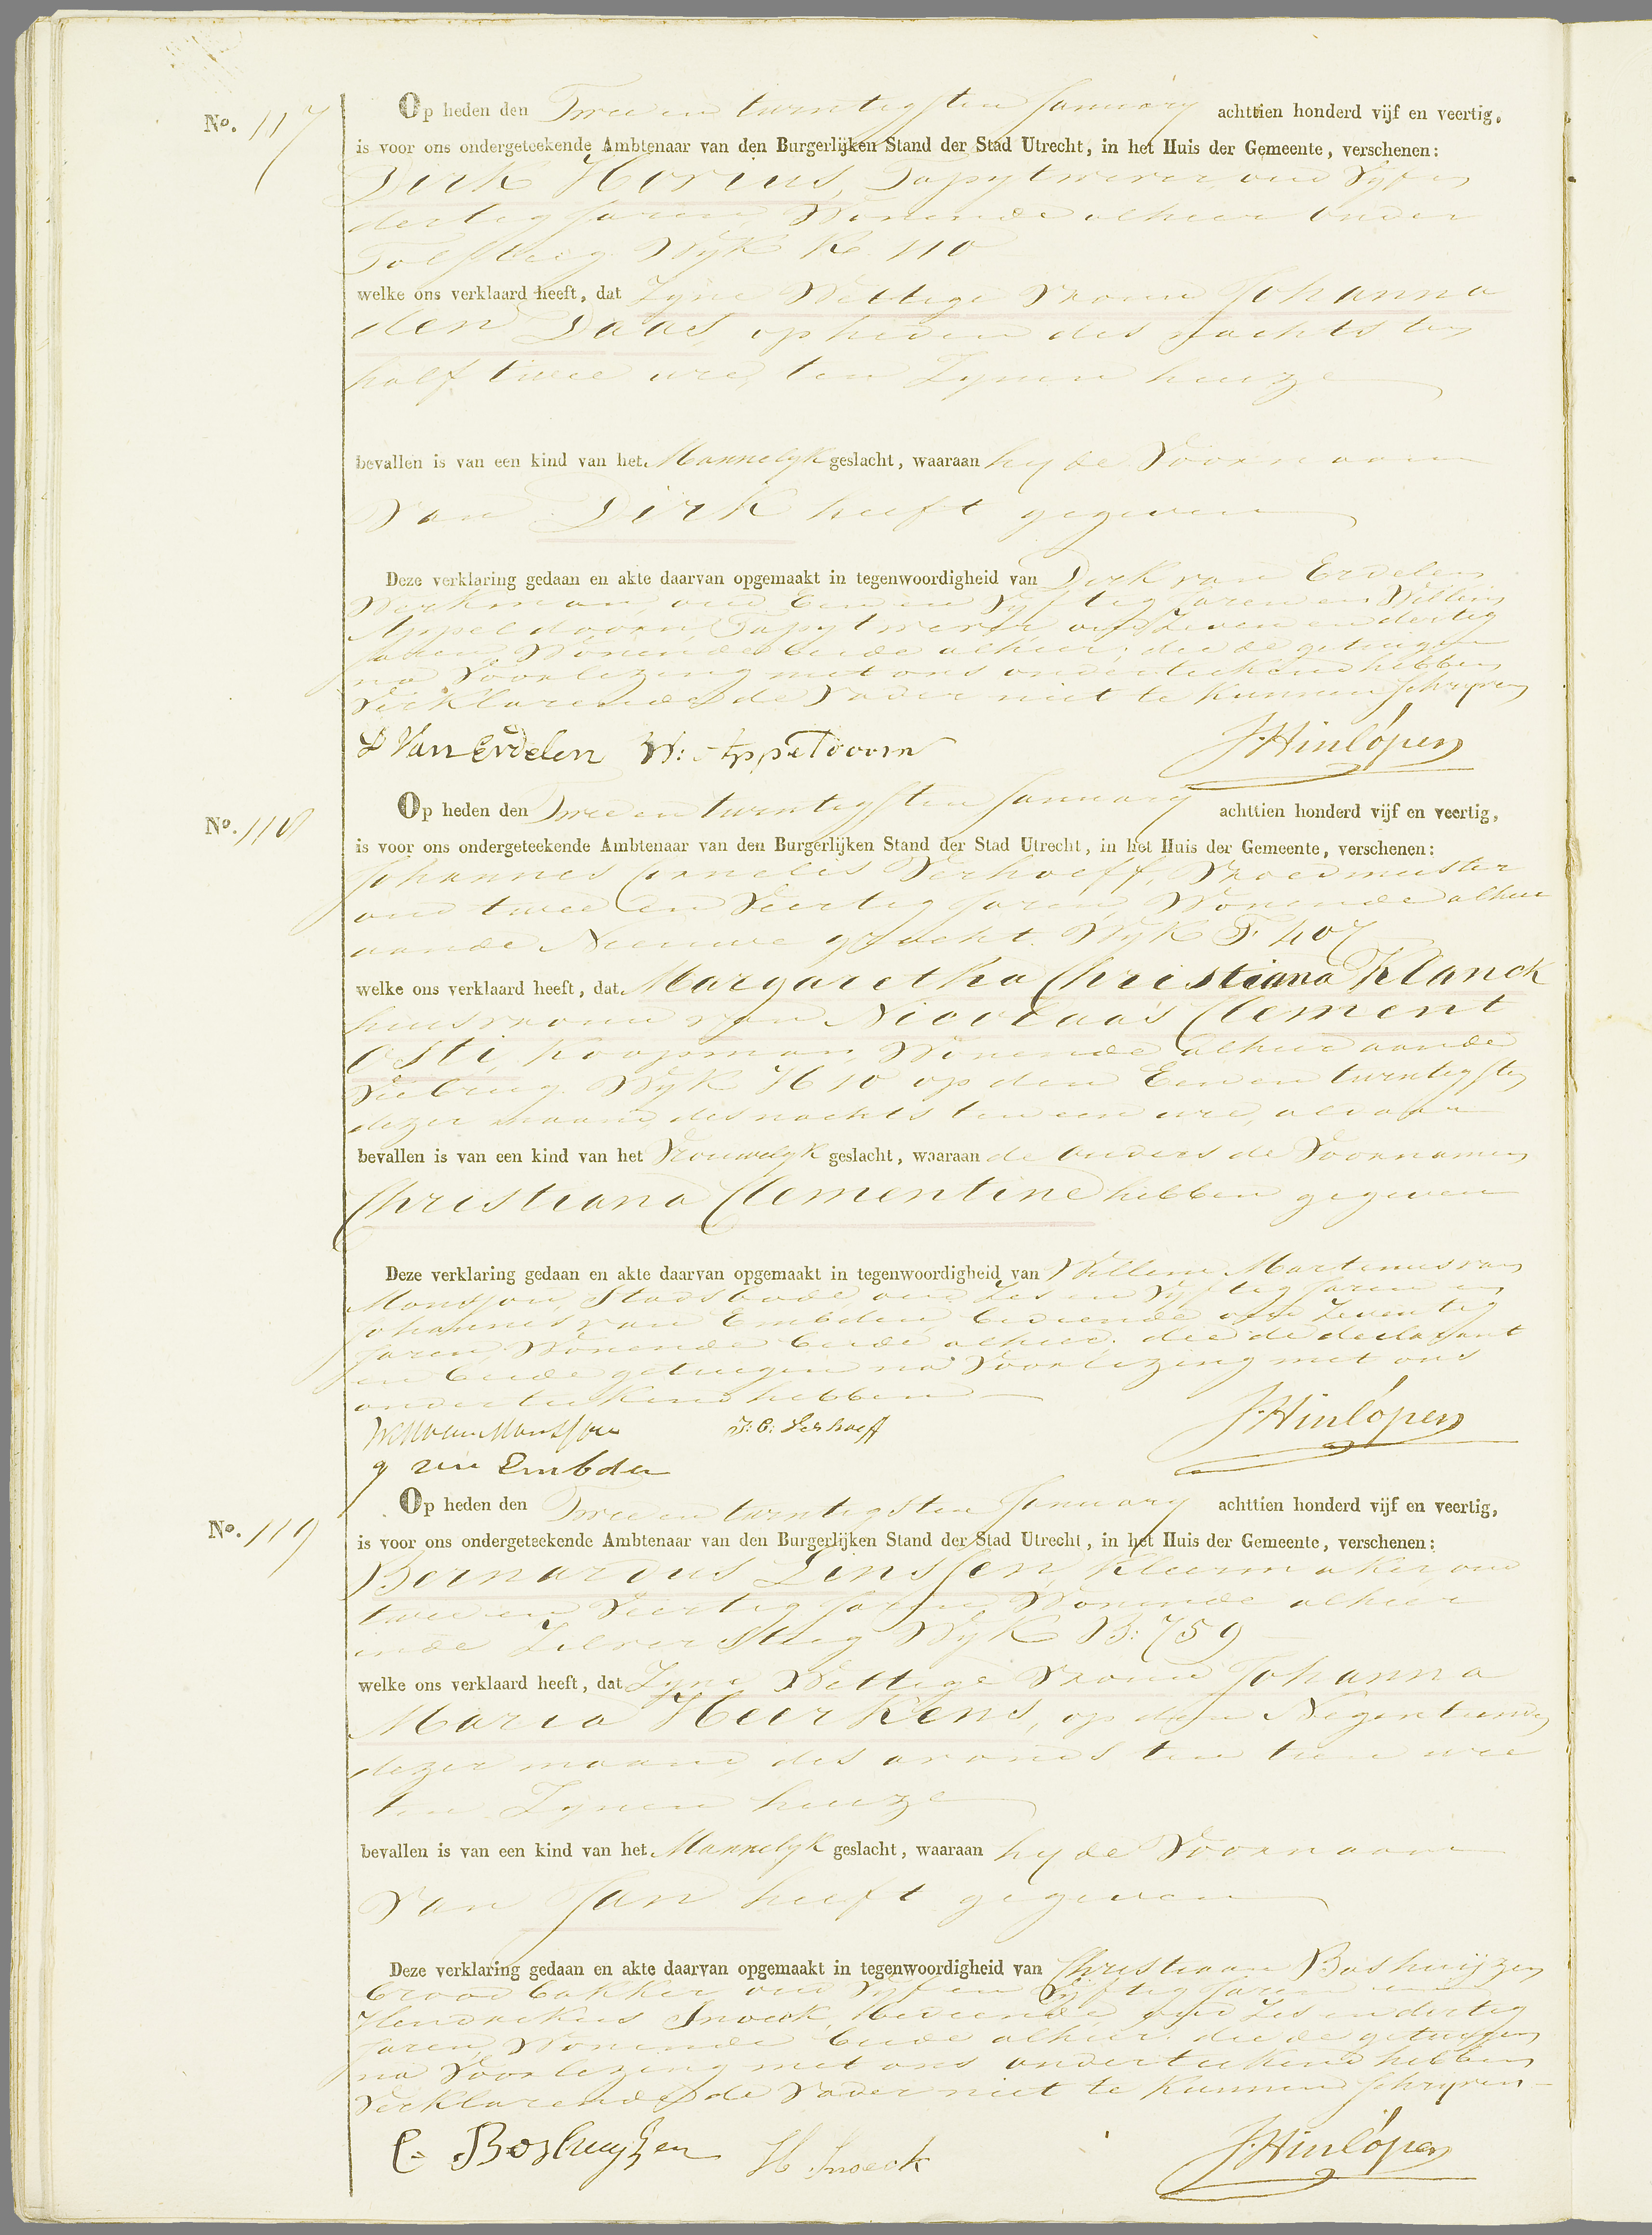 No. 117
Op heden den Twee en twintigsten January achttien honderd vijf en veertig,
is voor ons ondergeteekende Ambtenaar van den Burgerlijken Stand der Stad Utrecht, in het Huis der Gemeente, verschenen:
Dirk Horius, Tapytwever, oud Vyf en
dertig Jaren, Wonende alhier onder
Tolsteeg Wyk K. 110
welke ons verklaard heeft, dat Zyne Wettige Vrouw Johanna
den Daas, op heden des nachts ten
half twee ure, ten Zynen huize
bevallen is van een kind van het Mannelyk geslacht, waaraan hy de Voornaam
van Dirk heeft gegeven
Deze verklaring gedaan en akte daarvan opgemaakt in tegenwoordigheid van Dirk van Erdelen
Werkman, oud Een en Vyftig Jaren en Willem
Appeldoorn, Tapytwever oud Zeven en dertig
Jaren, Wonende beide alhier; die de getuigen
na Voorlezing met ons onderteekend hebben
Verklarende de Vader niet te kunnen Schryven
D Van Erdelen W: Appeldoorn J. Hinlópen
No. 118
Op heden den Twee en twintigsten January achttien honderd vijf en veertig,
is voor ons ondergeteekende Ambtenaar van den Burgerlijken Stand der Stad Utrecht, in het Huis der Gemeente, verschenen:
Johannes Cornelis Verhoeff, Vroedmeester
oud twee en Veertig Jaren, Wonende alhier
aan de Nieuwe gracht. Wyk F 407
welke ons verklaard heeft, dat Margaretha Christiana Klanck
huisvrouw van Nicolaas Clement
Osti, Koopman, Wonende alhier aan de
Viebrug. Wyk H 10 op den Een en twintigsten
dezer maand des nachts ten een ure, aldaar
bevallen is van een kind van het Vrouwelyk geslacht, waaraan de Ouders de Voornamen
Christiana Clementine hebben gegeven
Deze verklaring gedaan en akte daarvan opgemaakt in tegenwoordigheid van Willem Martinus van
Monsjou, Stadsbode, oud Zes en Vyftig Jaren en
Johannes van Embden bediende oud Zeventig
Jaren, Wonende beide alhier; die de declarant
en beide getuigen na Voorlezing met ons
onderteekend hebben
W M van Monsjou J: C: Verhoeff J. Hinlópen
J van Embden
No. 119
Op heden den Twee en twintigsten January achttien honderd vijf en veertig,
is voor ons ondergeteekende Ambtenaar van den Burgerlijken Stand der Stad Utrecht, in het Huis der Gemeente, verschenen:
Bernardus Linssen, Kleermaker, oud
twee en Veertig Jaren, Wonende alhier
in de Zilver Steeg Wyk B: 759
welke ons verklaard heeft, dat Zyne Wettige Vrouw Johanna
Maria Heerkens, op den Negentienden
dezer maand, des avonds ten tien ure
ten Zynen huize
bevallen is van een kind van het Mannelyk geslacht, waaraan hy de Voornaam
van Jan heeft gegeven
Deze verklaring gedaan en akte daarvan opgemaakt in tegenwoordigheid van Christiaan Boshuijzen
broodbakker, oud Vyf en Vyftig Jaren en
Hendrikus Snoeck, bediende oud Zes en dertig
Jaren, Wonende beide alhier. die de getuigen
na Voorlezing met ons onderteekend hebben
Verklarende de Vader niet te kunnen Schryven
C. Boshuyzen H. Snoeck J. Hinlópen